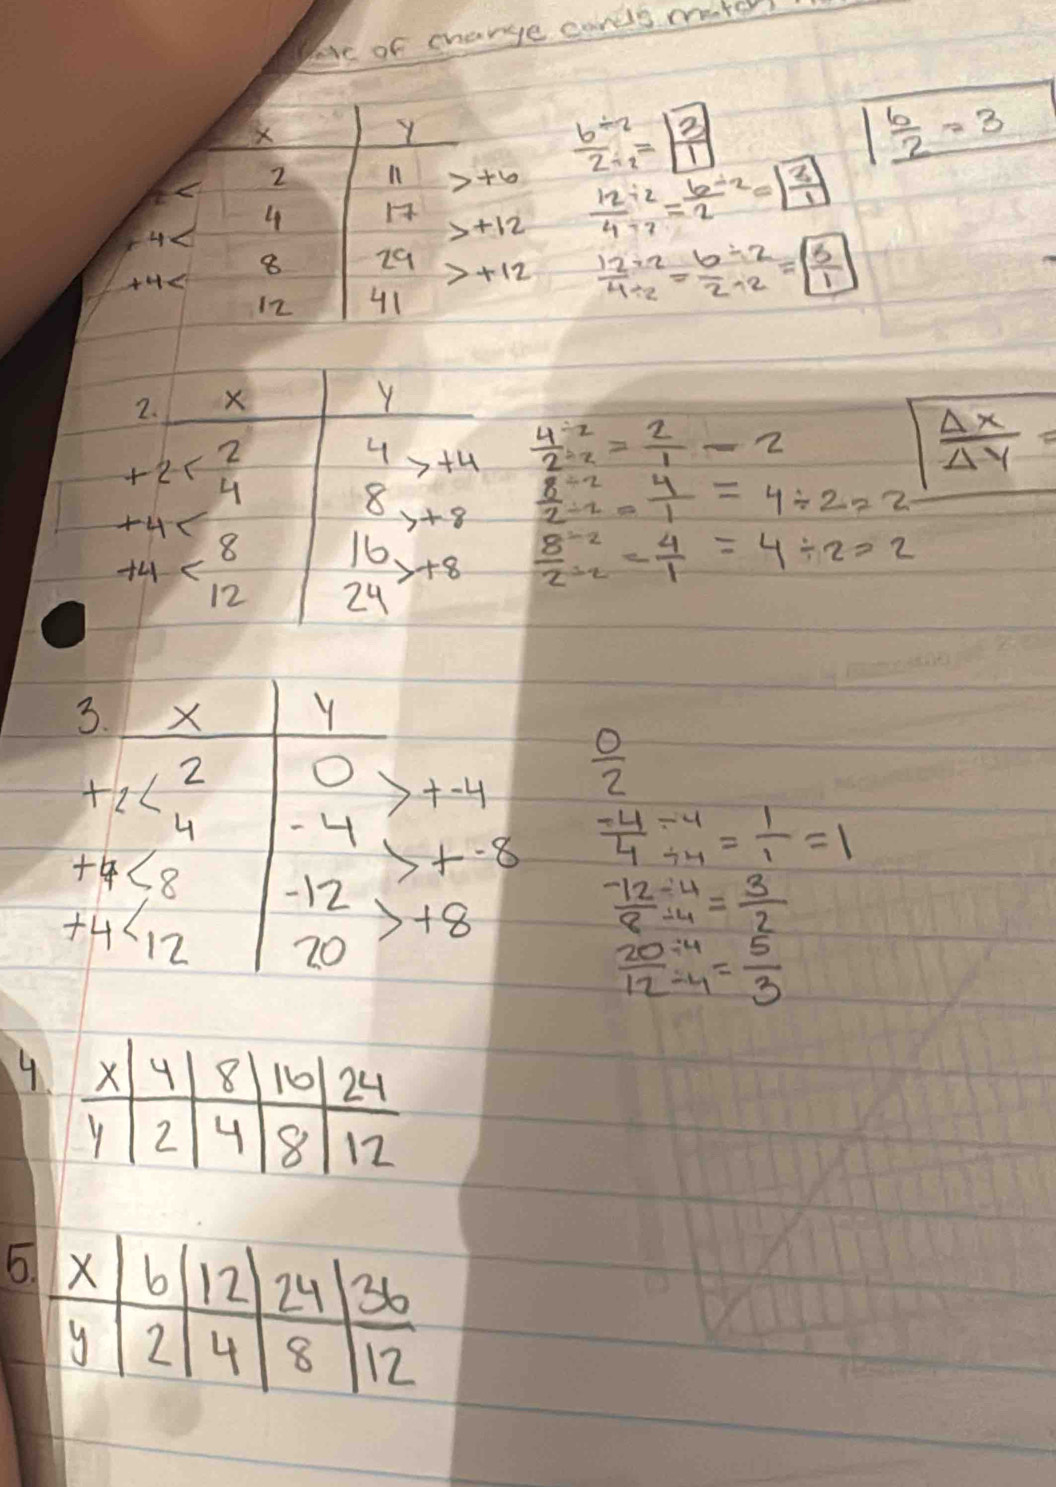 of change cards match
x | y
2 | 11 >+6
+4< 4 | 17 >+12
+4< 8 | 29 >+12
12 | 41
6÷2/2÷2 = 3/1
12÷2/4÷2 = 6÷2/2 = 3/1
12÷2/4÷2 = 6÷2/2÷2 = 3/1
6/2 = 3
2. x | y
+2< 2 | 4 >+4
+4< 4 | 8 >+8
+4< 8 | 16 >+8
12 | 24
4÷2/2÷2 = 2/1 = 2
8÷2/2÷2 = 4/1 = 4÷2=2
8÷2/2÷2 = 4/1 = 4÷2=2
Δx/Δy =
3. x | y
+2< 2 | 0 >+-4
+4< 4 | -4 >+-8
+4< 8 | -12 >+8
12 | 20
0/2
-4÷4/4÷4 = 1/1 = 1
-12÷4/8÷4 = 3/2
20÷4/12÷4 = 5/3
4. x | 4 | 8 | 16 | 24
y | 2 | 4 | 8 | 12
5. x | 6 | 12 | 24 | 36
y | 2 | 4 | 8 | 12